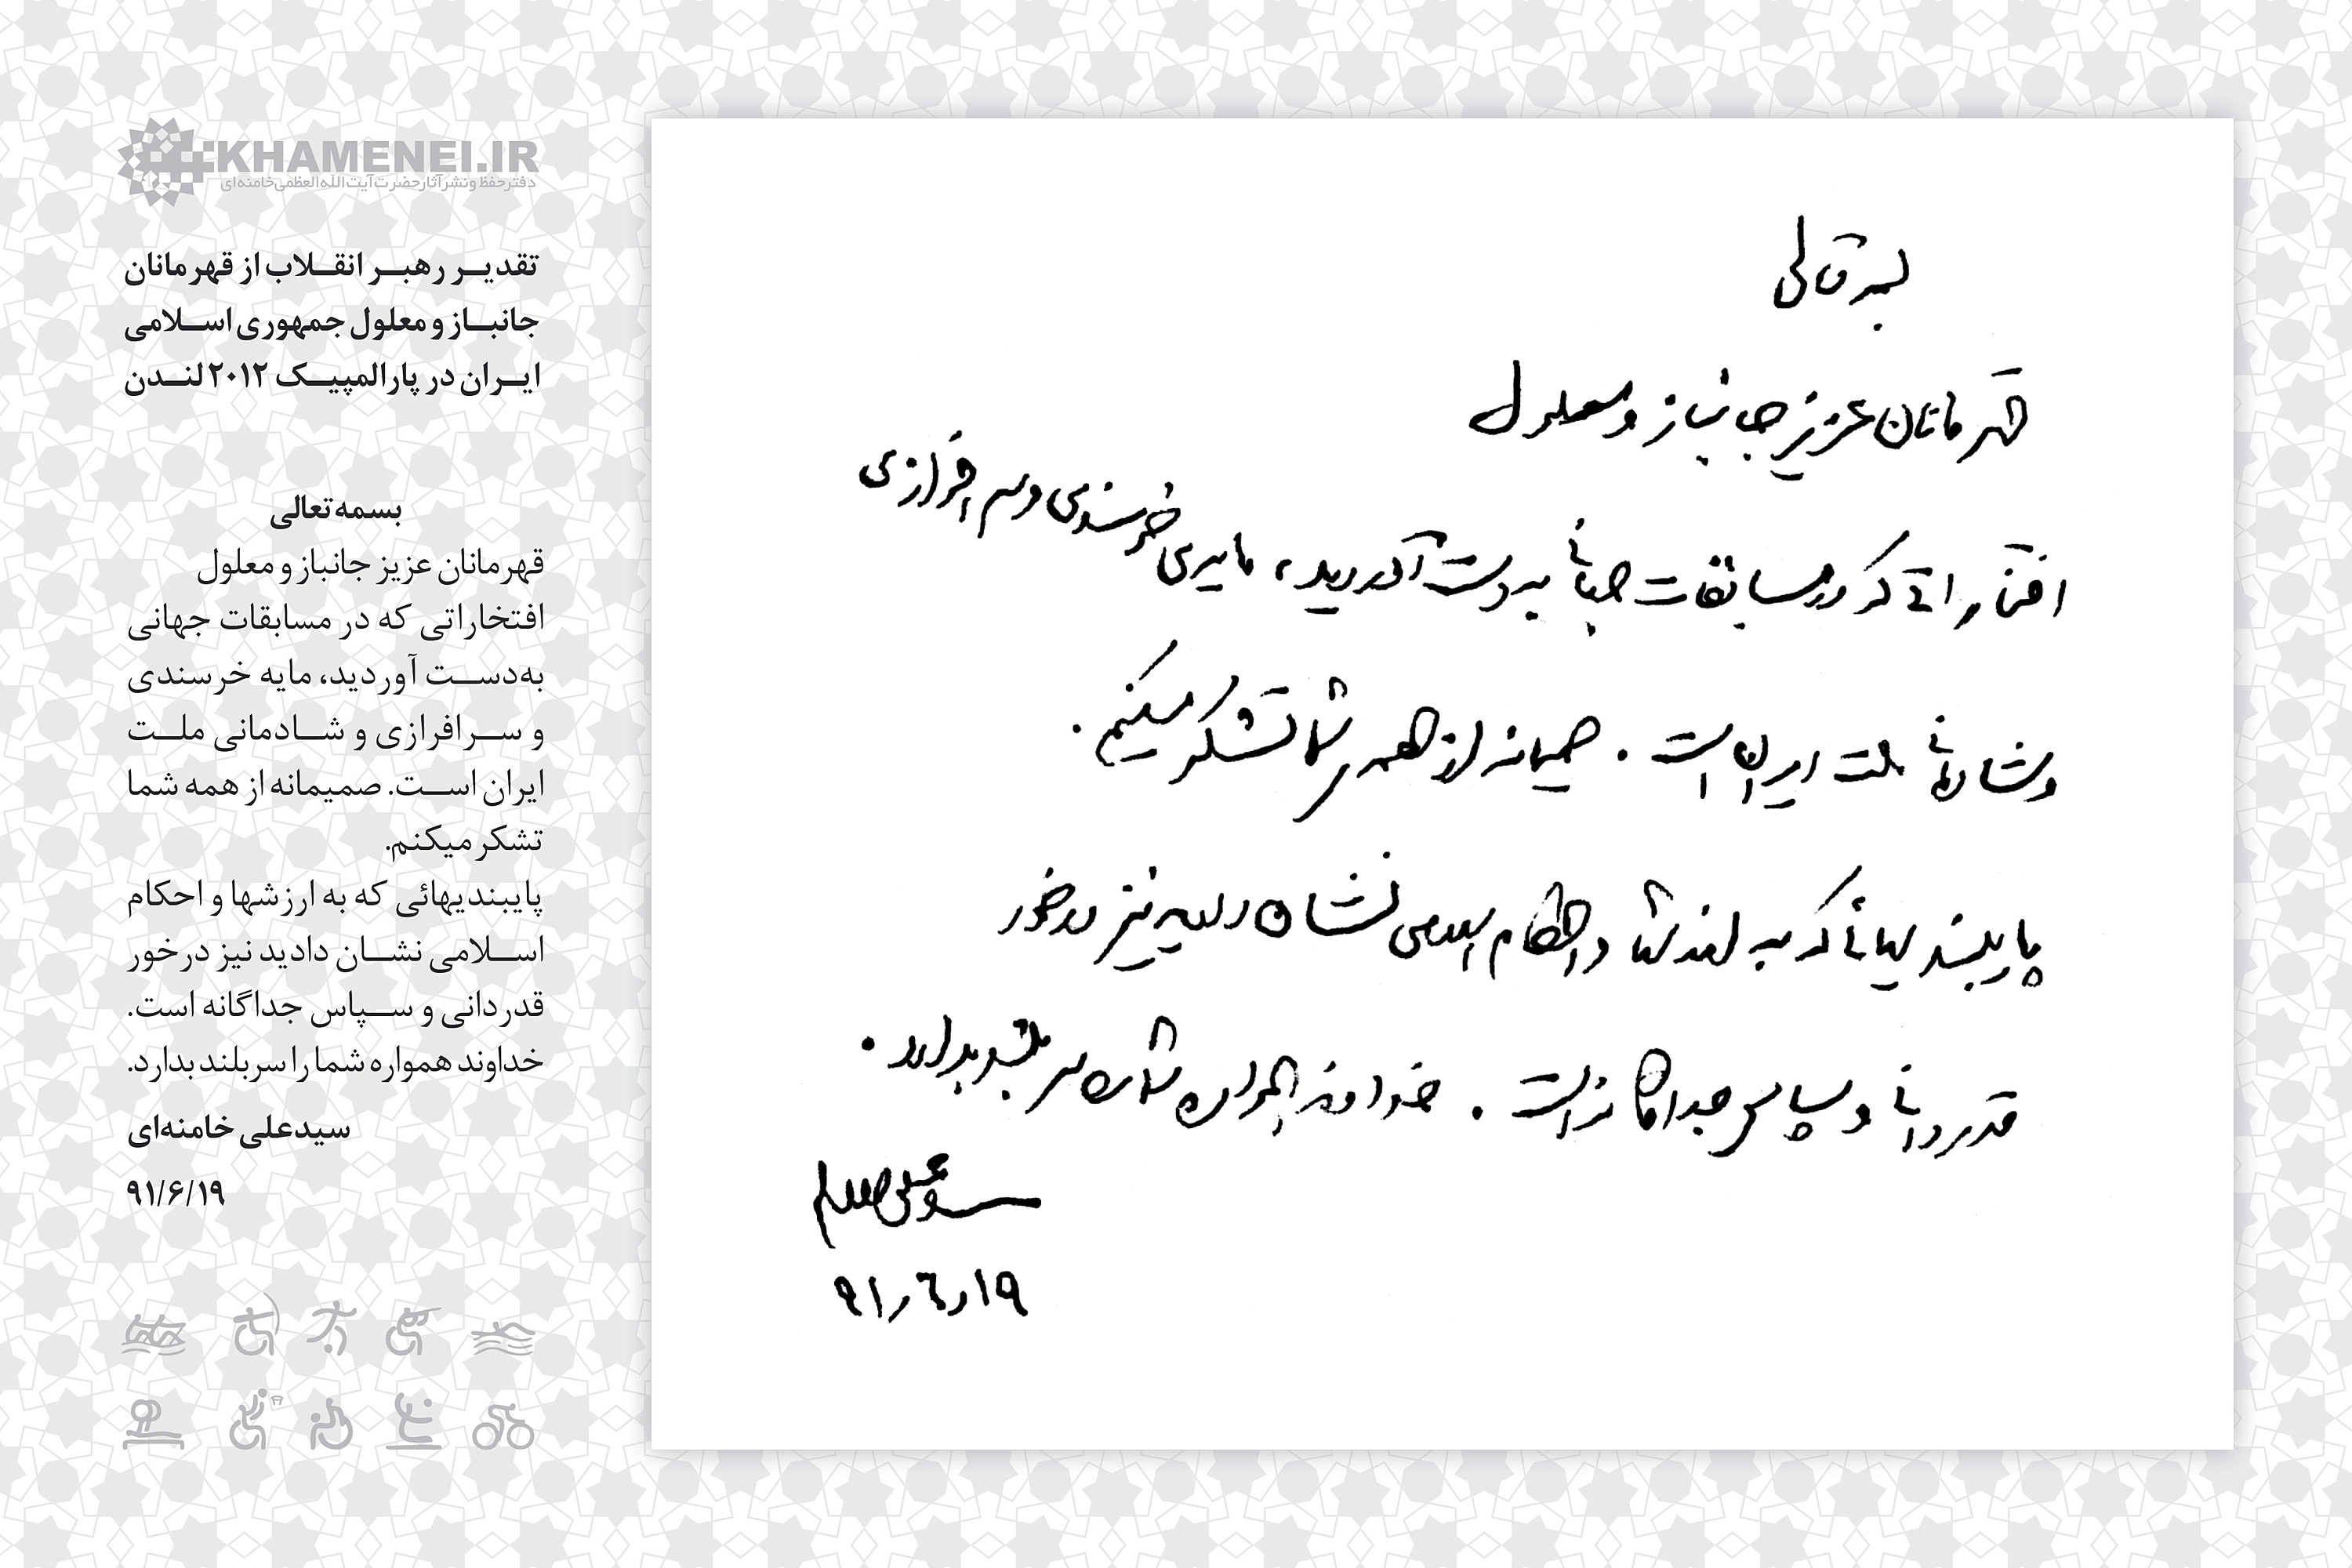 KHAMENEI.IR
دفتر حفظ و نشر آثار حضرت آیت‌الله‌العظمی خامنه‌ای
تقدیر رهبر انقلاب از قهرمانان
جانباز و معلول جمهوری اسلامی
ایران در پارالمپیک ۲۰۱۲ لندن
بسمه تعالی
قهرمانان عزیز جانباز و معلول
افتخاراتی که در مسابقات جهانی
به‌دست آوردید، مایه خرسندی
و سرافرازی و شادمانی ملت
ایران است. صمیمانه از همه شما
تشکر میکنم.
پایبندیهائی که به ارزشها و احکام
اسلامی نشان دادید نیز درخور
قدردانی و سپاس جداگانه است.
خداوند همواره شما را سربلند بدارد.
سیدعلی خامنه‌ای
۹۱/۶/۱۹
بسمه تعالی
قهرمانان عزیز جانباز و معلول
افتخاراتی که در مسابقات جهانی به دست آوردید، مایه‌ی خرسندی و سرافرازی
و شادمانی ملت ایران است. صمیمانه از همه شما تشکر میکنم.
پایبندیهائی که به ارزشها و احکام اسلامی نشان دادید نیز درخور
قدردانی و سپاس جداگانه است. خداوند همواره شما را سربلند بدارد.
سیدعلی خامنه‌ای
۹۱/۶/۱۹